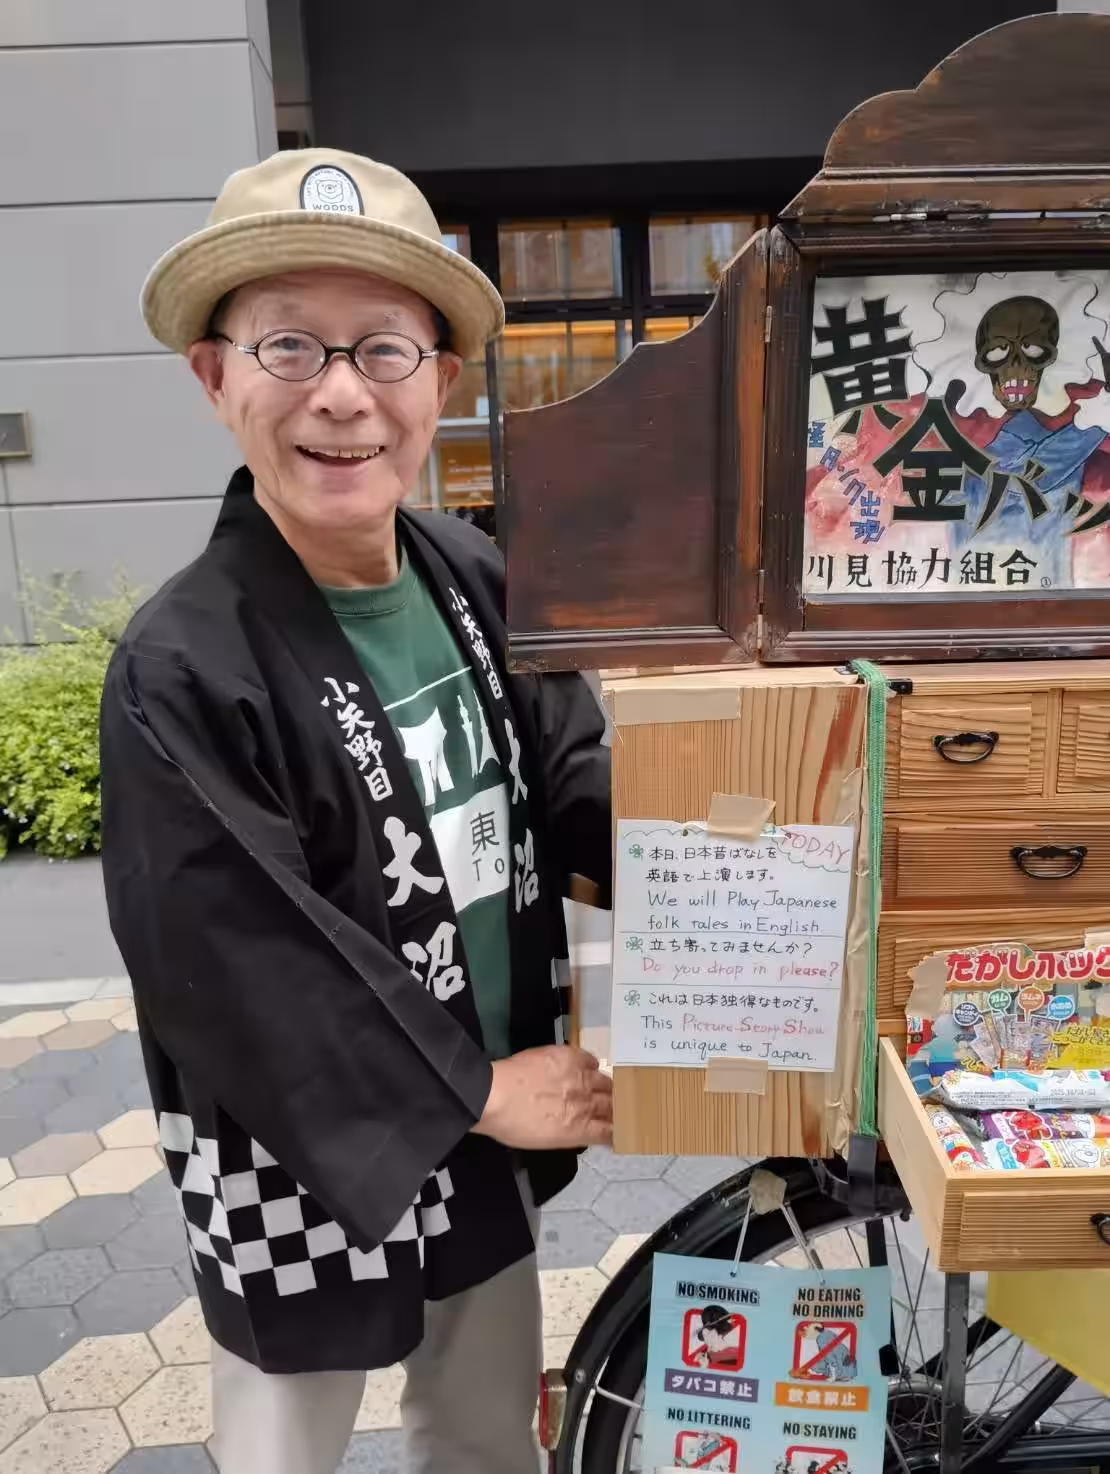 WOODS
黄金バッ
怪タンク出現
川見協力組合①
小矢野目
大沼
小矢野目
大沼
東
To
TODAY
本日、日本昔ばなしを
英語で上演します。
We will Play Japanese
folk tales in English.
立ち寄ってみませんか?
Do you drop in please?
これは日本独得なものです。
This Picture Story Show
is unique to Japan.
だがしボック
ガム
ラムネ
NO SMOKING
タバコ禁止
NO EATING
NO DRINING
飲食禁止
NO LITTERING
NO STAYING